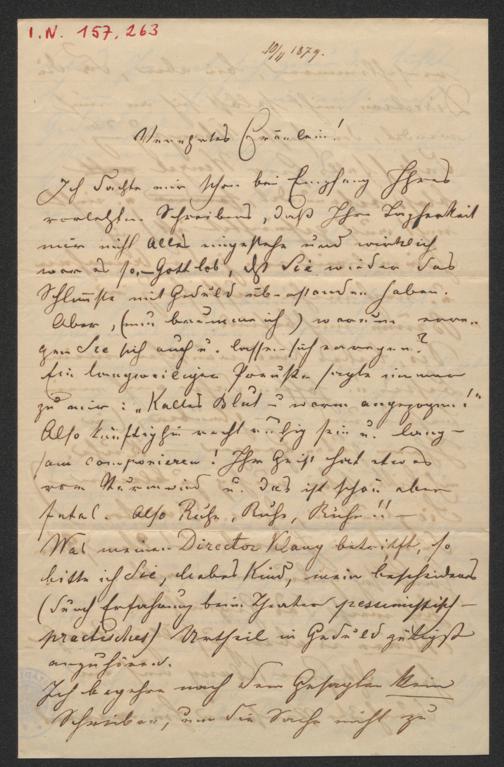 I.N. 157.263
10/4 1879.
Verehrtes Fräulein!
Ich dachte mir schon bei Empfang Ihres
vorletzten Schreibens, daß Ihre Tapferkeit
mir nicht Alles eingestehe und wirklich
war es so, – Gottlob, dß Sie wieder das
Schlimmste mit Geduld überstanden haben.
Aber, (nun brumme ich) warum erre-
gen Sie sich auch u. lassen sich erregen?
Ein langweiliger Preuße sagte immer
zu mir: „Kaltes Blut u warm angezogen!"
Also künftighin recht ruhig sein u. lang-
sam componieren! Ihr Geist hat etwas
vom Sturmwind u. das ist schön aber
fatal. Also Ruhe, Ruhe, Ruhe!! –
Was meinen Director Klang betrifft, so
bitte ich Sie, liebes Kind, mein bescheidenes
(durch Erfahrung beim Theater pessimistisch-
practisches) Urtheil in Geduld gütigst
anzuhören.
Ich begehre nach dem Gesagten kein
Schreiben, um die Sache nicht zu